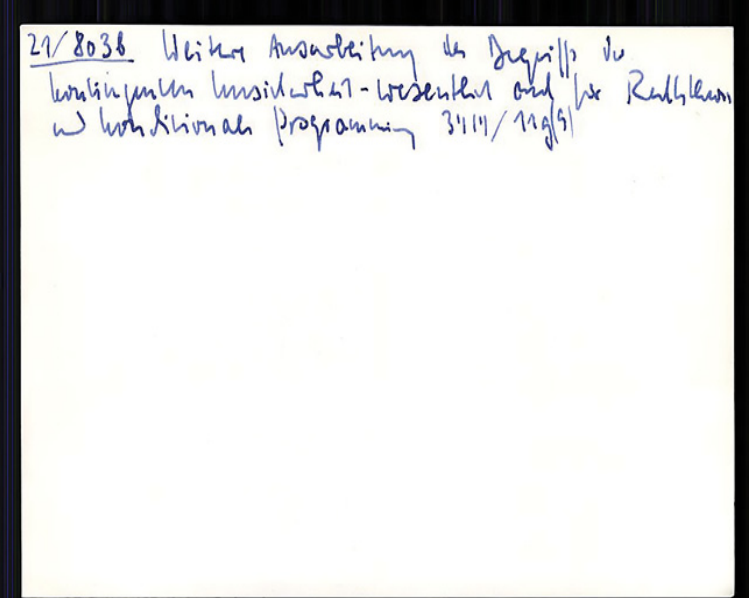 21/803b Weitere Ausarbeitung des Begriffs der
kontingenten Unsicherheit - wesentlich auch für Rechtstheorie
und konditionale Programmierung